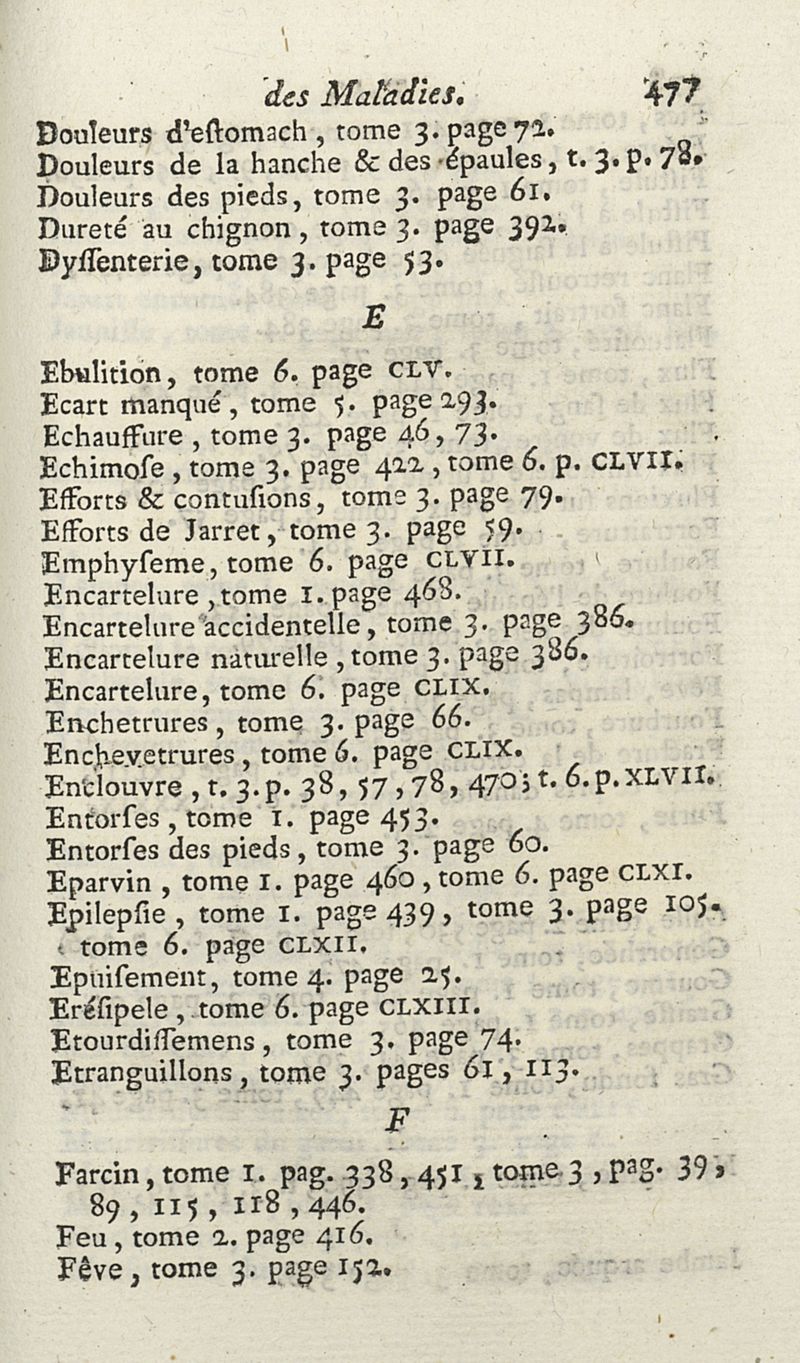 des Maladies. 477
Douleurs d'eſtomach, tome 3. page 72.
Douleurs de la hanche & des épaules, t. 3. p. 78.
Douleurs des pieds, tome 3. page 61.
Dureté au chignon, tome 3. page 392.
Dyſſenterie, tome 3. page 53.
E
Ebulition, tome 6. page CLV.
Ecart manqué, tome 5. page 293.
Echauffure, tome 3. page 46, 73.
Echimoſe, tome 3. page 422, tome 6. p. CLVII.
Efforts & contuſions, tome 3. page 79.
Efforts de Jarret, tome 3. page 59.
Emphyſeme, tome 6. page CLVII.
Encartelure, tome 1. page 468.
Encartelure accidentelle, tome 3. page 386.
Encartelure naturelle, tome 3. page 386.
Encartelure, tome 6. page CLIX.
Enchetrures, tome 3. page 66.
Enchevetrures, tome 6. page CLIX.
Enclouvre, t. 3. p. 38, 57, 78, 470; t. 6. p. XLVII.
Entorſes, tome 1. page 453.
Entorſes des pieds, tome 3. page 60.
Eparvin, tome 1. page 460, tome 6. page CLXI.
Epilepſie, tome 1. page 439, tome 3. page 105.
tome 6. page CLXII.
Epuiſement, tome 4. page 25.
Eréſipele, tome 6. page CLXIII.
Etourdiſſemens, tome 3. page 74.
Etranguillons, tome 3. pages 61, 113.
F
Farcin, tome 1. pag. 338, 451, tome 3, pag. 39,
89, 115, 118, 446.
Feu, tome 2. page 416.
Fêve, tome 3. page 152.